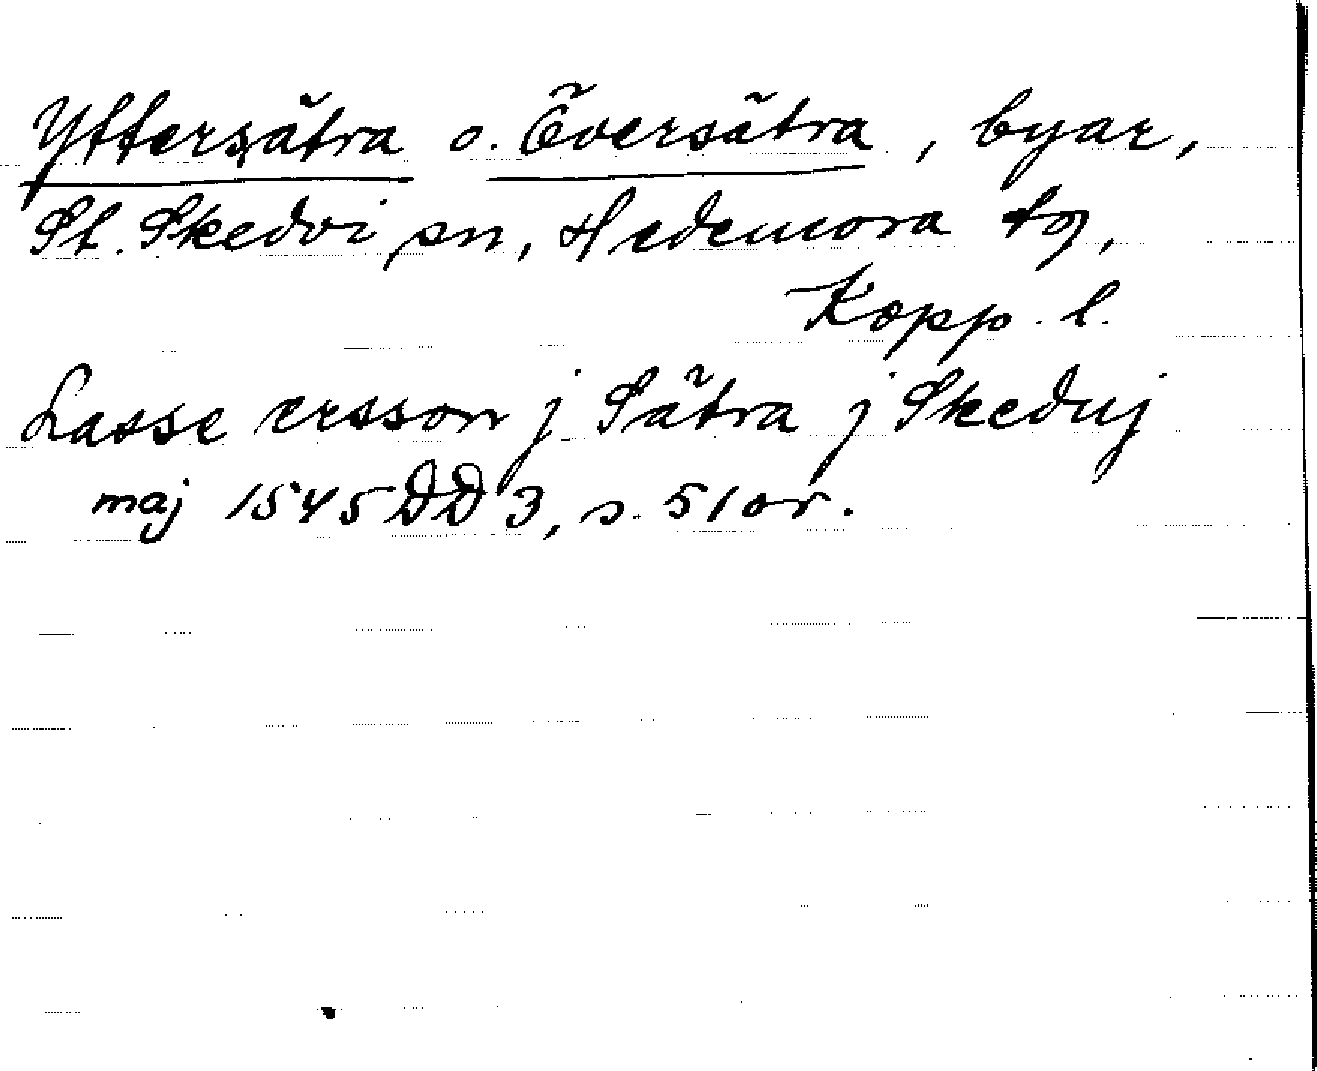 Yttersätra o. Översätra, byar,
St. Skedvi sn, Hedemora tg,
Kopp. l.
Lasse ersson j Sätra j Skeduj
maj 1545 DD 3, s. 51 or.